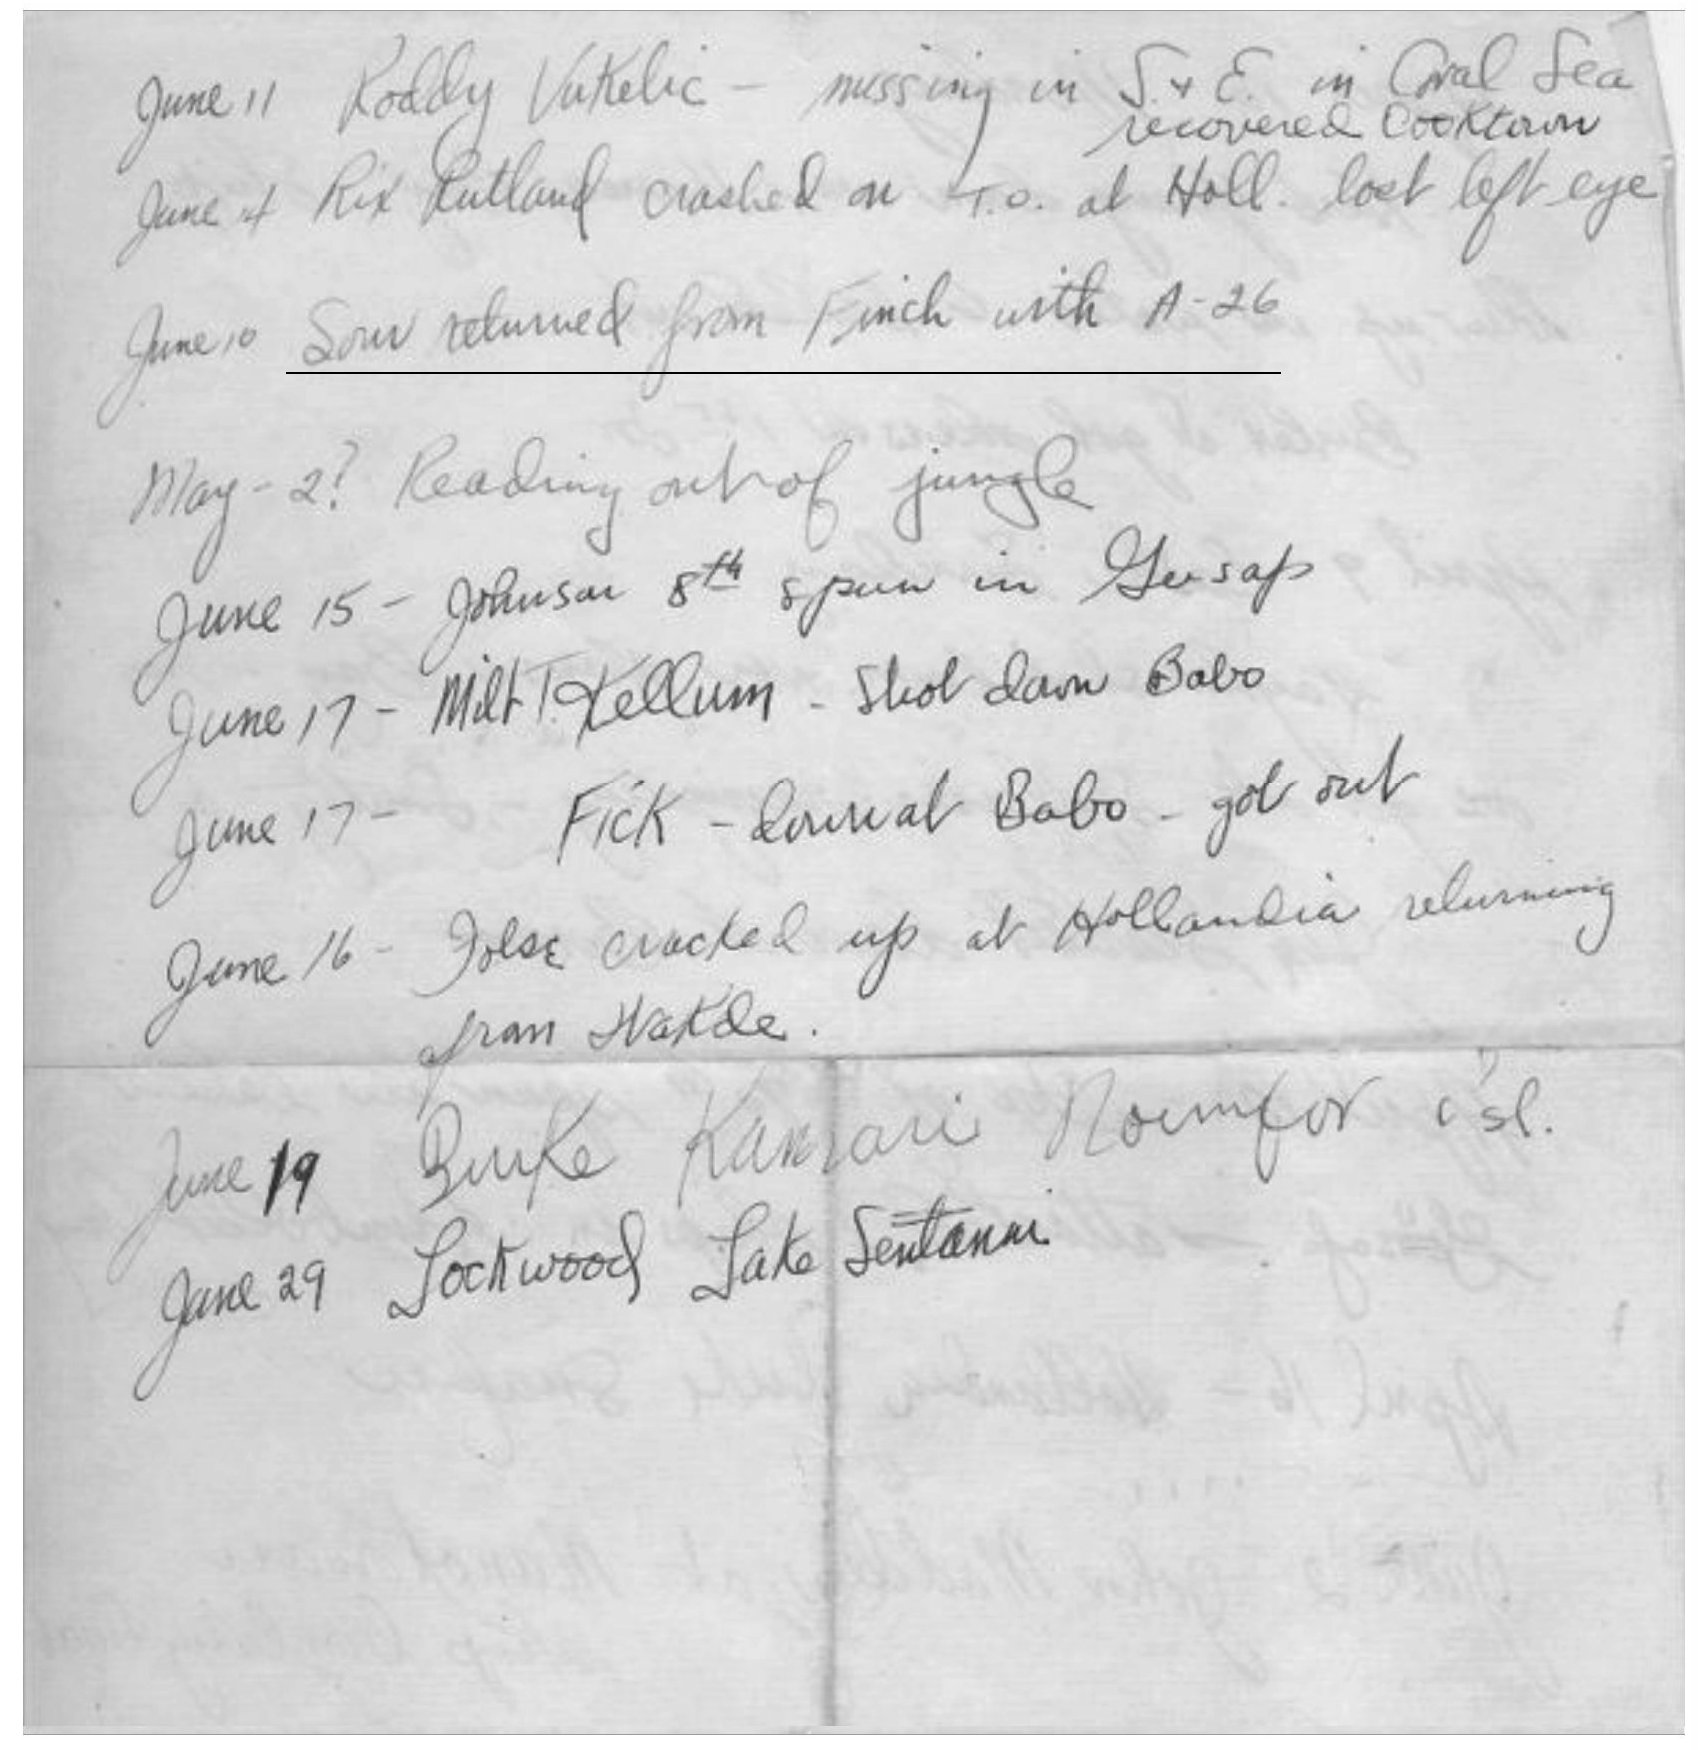 June 11 Roddy Vukelic - missing in S. & E. in Coral Sea
recovered Cooktown
June 4 Rix Rutland crashed on T.O. at Holl. lost left eye
June 10 Sour returned from Finch with A-26
May - 2? Reading out of jungle
June 15 - Johnson 8th spun in Gusap
June 17 - Milt T. Kellum - Shot down Babo
June 17 - Fick - down at Babo - got out
June 16 - cracked up at Hollandia returning
from Wakde.
June 19 Burke Kamiri Noemfor isl.
June 29 Lockwood Lake Sentanni